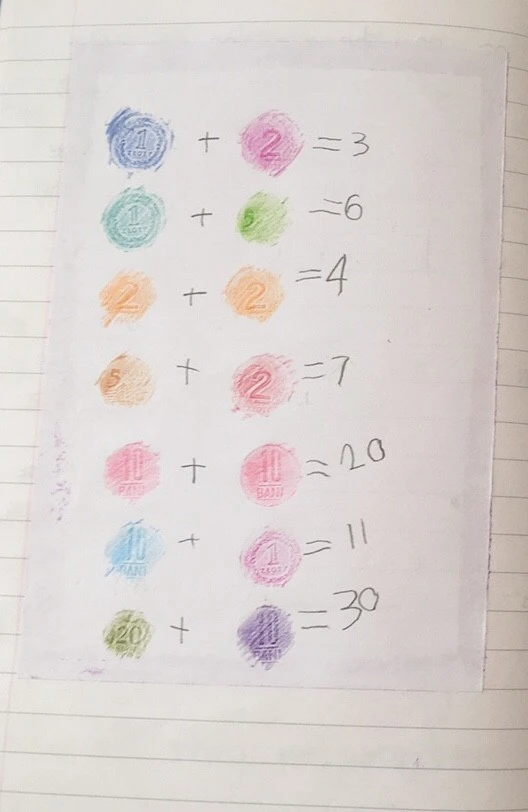 1 ZŁOTY + 2 = 3
1 ZŁOTY + 5 = 6
2 + 2 = 4
5 + 2 = 7
10 BANI + 10 BANI = 20
10 BANI + 1 ZŁOTY = 11
20 + 10 BANI = 30